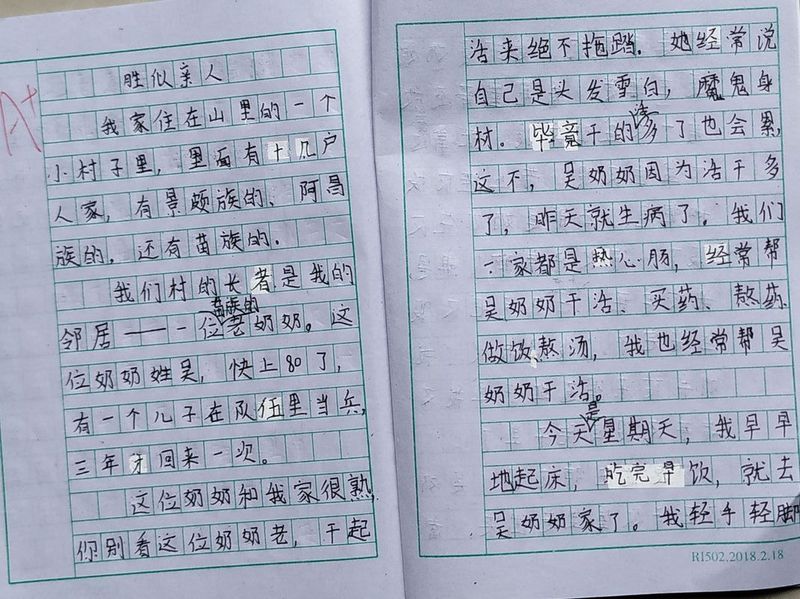 A+
胜似亲人
我家住在山里的一个
小村子里，里面有十几户
人家，有景颇族的、阿昌
族的，还有苗族的。
我们村的长者是我的
苗族的
邻居——一位老奶奶。这
位奶奶姓吴，快上80了，
有一个儿子在队伍里当兵，
三年才回来一次。
这位奶奶和我家很熟，
你别看这位奶奶老，干起
活来绝不拖踏。她经常说
自己是头发雪白，魔鬼身
材。毕竟干的多了也会累，
这不，吴奶奶因为活干多
了，昨天就生病了。我们
一家都是热心肠，经常帮
吴奶奶干活、买药、熬药、
做饭、熬汤，我也经常帮吴
奶奶干活。
是
今天星期天，我早早
地起床，吃完早饮，就去
吴奶奶家了。我轻手轻脚
R1502.2018.2.18